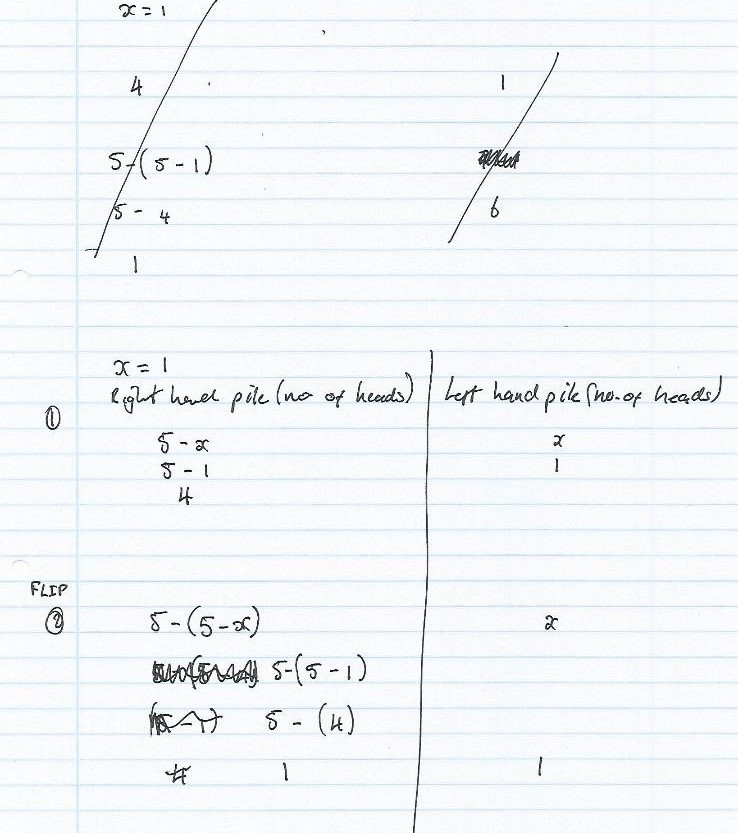 x = 1
4 1
5-(5-1)
5- 4 6
1
x = 1
Right hand pile (no of heads) Left hand pile (no. of heads)
①
5-x x
5-1 1
4
FLIP
② 5-(5-x) x
5-(5-1)
5-(4)
1 1